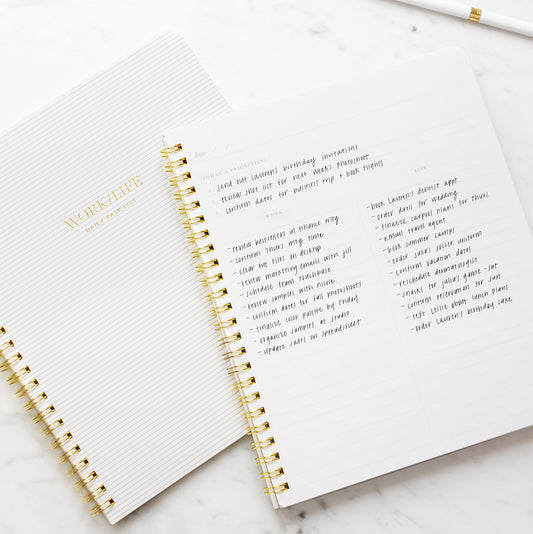 WORK/LIFE
DAILY TASK LIST
date / /
TODAY'S PRIORITIES:
send out lauren's birthday invitations
review shot list for next week's photoshoot
confirm dates for business trip + book flights
WORK
- review bestsellers in finance mtg
- confirm thurs mtg time
- clear off files on desktop
- review marketing emails with jill
- schedule team touchbase
- review samples with nicole
- confirm dates for fall photoshoots
- finalize color palette by friday
- organize samples at studio
- update sales on spreadsheet
LIFE
- book lauren's dentist appt
- order dress for wedding
- finalize carpool plans for thurs
- email travel agent
- book summer camps
- order julia's soccer uniform
- confirm vacation dates
- reschedule dermatologist
- snacks for julia's game - sat
- confirm reservation for sun
- text leslie about lunch plans
- order lauren's birthday cake